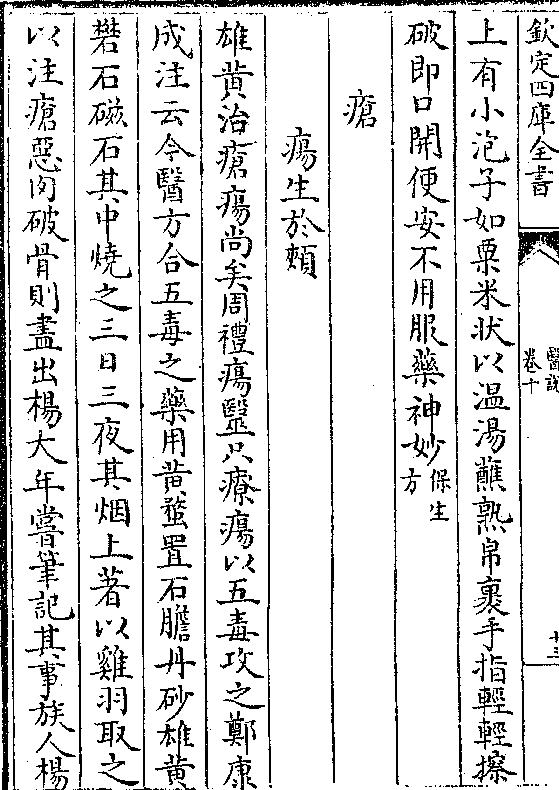 欽定四庫全書
醫說
卷十
十三
上有小泡子如粟米狀以温湯蘸熟帛裹手指輕輕擦
破即口開便安不用服藥神妙保生方
瘡
瘍生於頰
雄黄治瘡瘍尚矣周禮瘍毉只療瘍以五毒攻之鄭康
成注云今醫方合五毒之藥用黄蝥置石膽丹砂雄黄
礬石磁石其中燒之三日三夜其烟上著以雞羽取之
以注瘡惡肉破骨則盡出楊大年嘗筆記其事族人楊